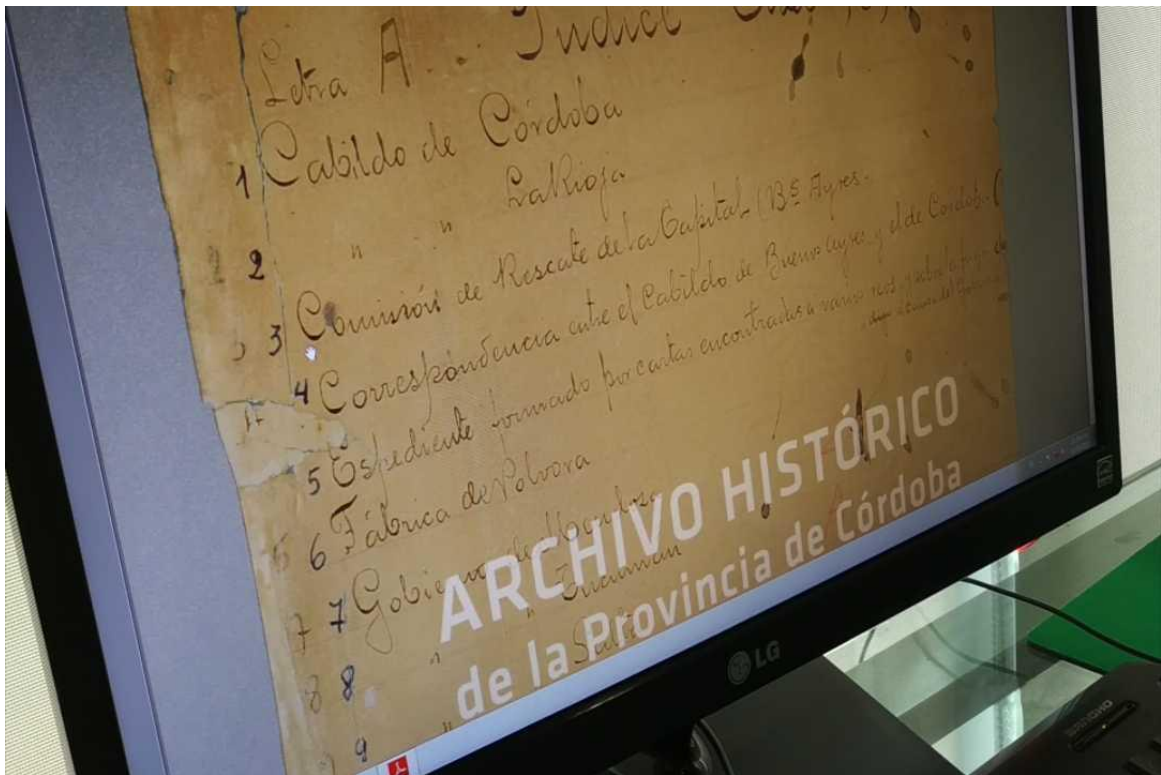 Letra A . Indice
1 Cabildo de Córdoba
2 " " La Rioja
3 Comisión de Rescate de la Capital (Bs Ayres.
4 Correspóndencia entre el Cabildo de Buenos Ayres y el de Cordoba (
5 Espediente formado por cartas encontradas a varios reos y sobre la fuga de
6 Fábrica de Pólvora
7 Gobierno de Mendoza
8 " " Tucuman
9 " Salta
ARCHIVO HISTÓRICO
de la Provincia de Córdoba
LG